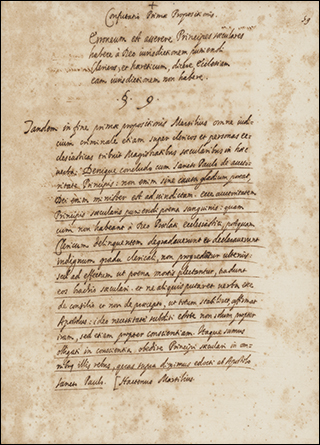 Confutatio Primæ Propositionis.
59
Erroneum est asserere Principes sæculares
habere à Deo iurisdictionem puniendi
Clericos, et hæreticum, dicere Ecclesiam
eam iurisdictionem non habere.
§. 9
Tandem in fine primæ propositionis Marsilius omne iudi
cium criminale etiam super clericos et personas ec
clesiasticas tribuit Magistratibus sæcularibus in hæc
verba: Denique concludo cum Sancto Paulo de aucto
ritate Principis: non enim sine causa gladium portat,
Dei enim minister est ad vindictam: ecce auctoritatem
Principis sæcularis puniendi poena sanguinis: quam
cum non habeant à Deo Prælati ecclesiastici, postquam
Clericum delinquentem degradaverunt et declaraverunt
indignum gradu clericali, non progrediuntur ulterius:
sed ad effectum ut poena mortis plectantur, tradunt
eos brachio sæculari. et ne aliquis putaret verba esse
de consilio et non de præcepto, ut totum stabiliret, affirmat
Apostolus: ideo necessitate subditi estote non solum propter
iram, sed etiam propter conscientiam. Itaque sumus
obligati in conscientia, obedire Principi sæculari in om
nibus illis rebus, quas supra diximus edocti ab Apostolo
Sancto Paulo. [Hactenus Marsilius.